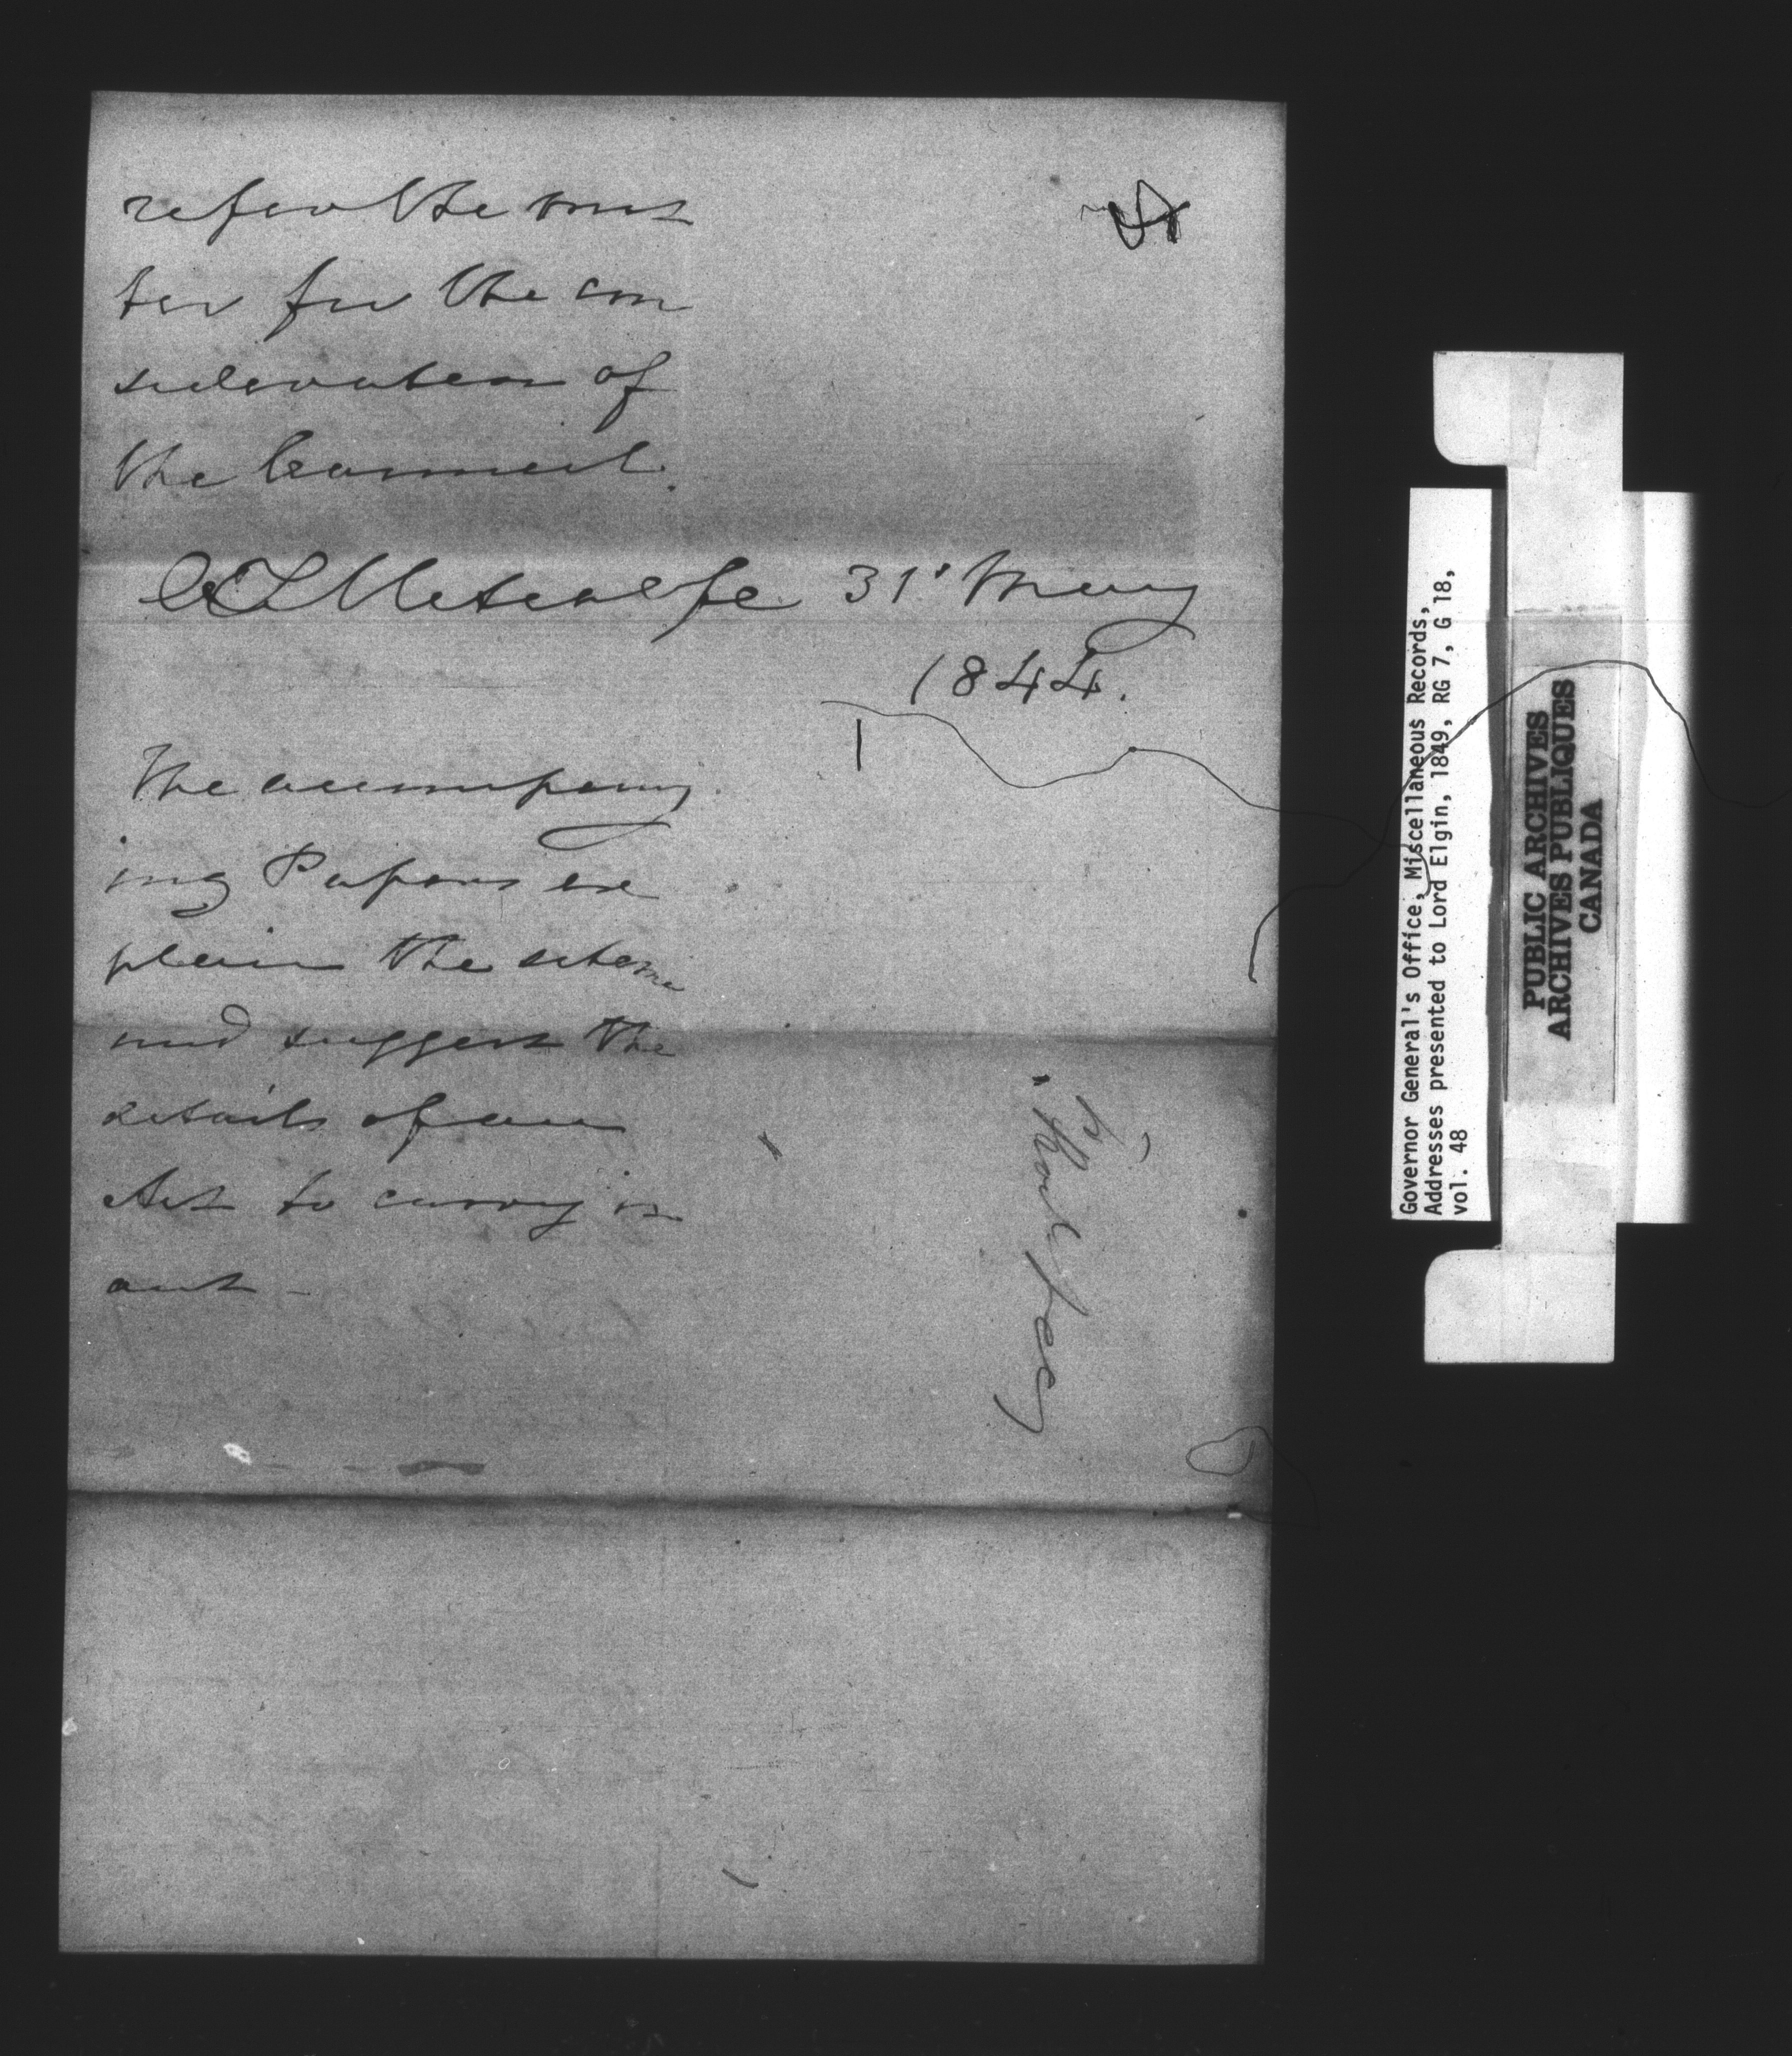 refer the mat
ter for the con
sideration of
the Council.
CTMetcalfe 31st May
1844.
The accompany
ing Papers ex
plain the scheme
and suggest the
details of an
Act to carry it
out -
Governor General's Office, Miscellaneous Records,
Addresses presented to Lord Elgin, 1849, RG 7, G 18,
vol. 48
PUBLIC ARCHIVES
ARCHIVES PUBLIQUES
CANADA